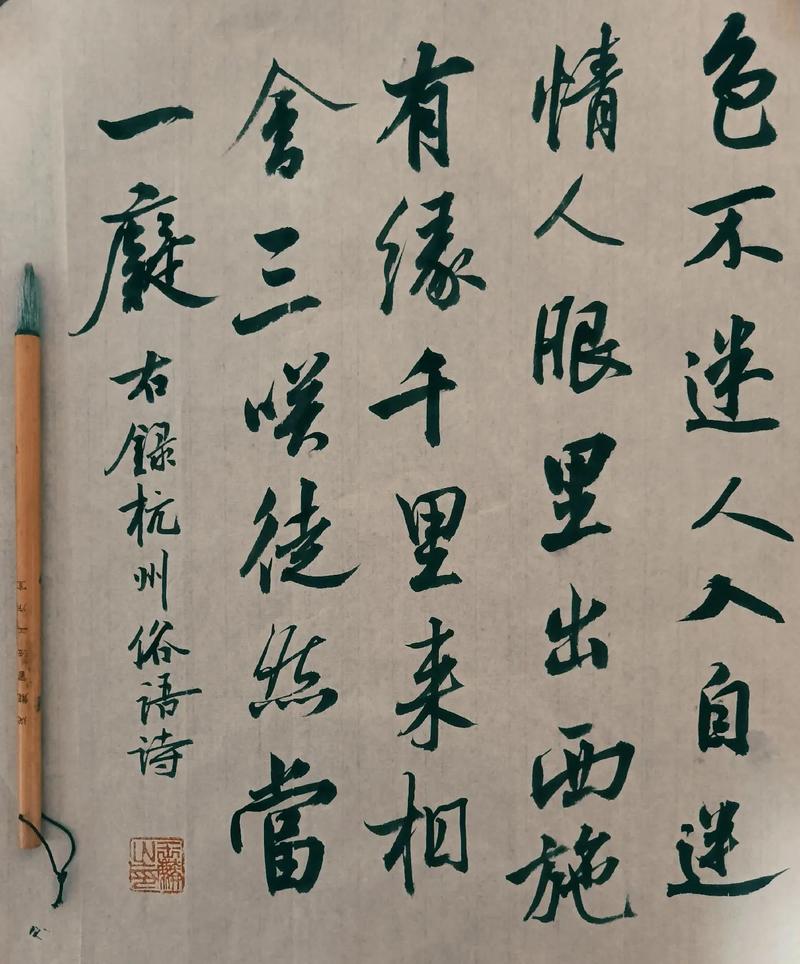 色不迷人入自迷
情人眼里出西施
有缘千里来相
會三咲徒然當
一癡右録杭州俗语诗